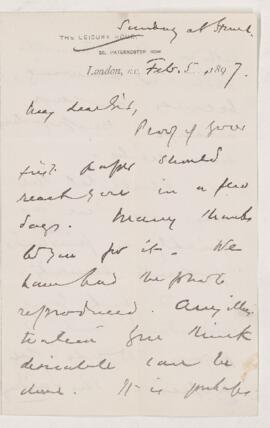 Sunday at
THE LEISURE HOUR.
56, PATERNOSTER ROW
London, E.C. Feb. 5 1897.
My dear Sir,
Proof of your
first paper should
reach you in a few
days. Many thanks
to you for it. We
have had the photo
reproduced. Any illus-
tration you think
desirable can be
done. It is perhaps